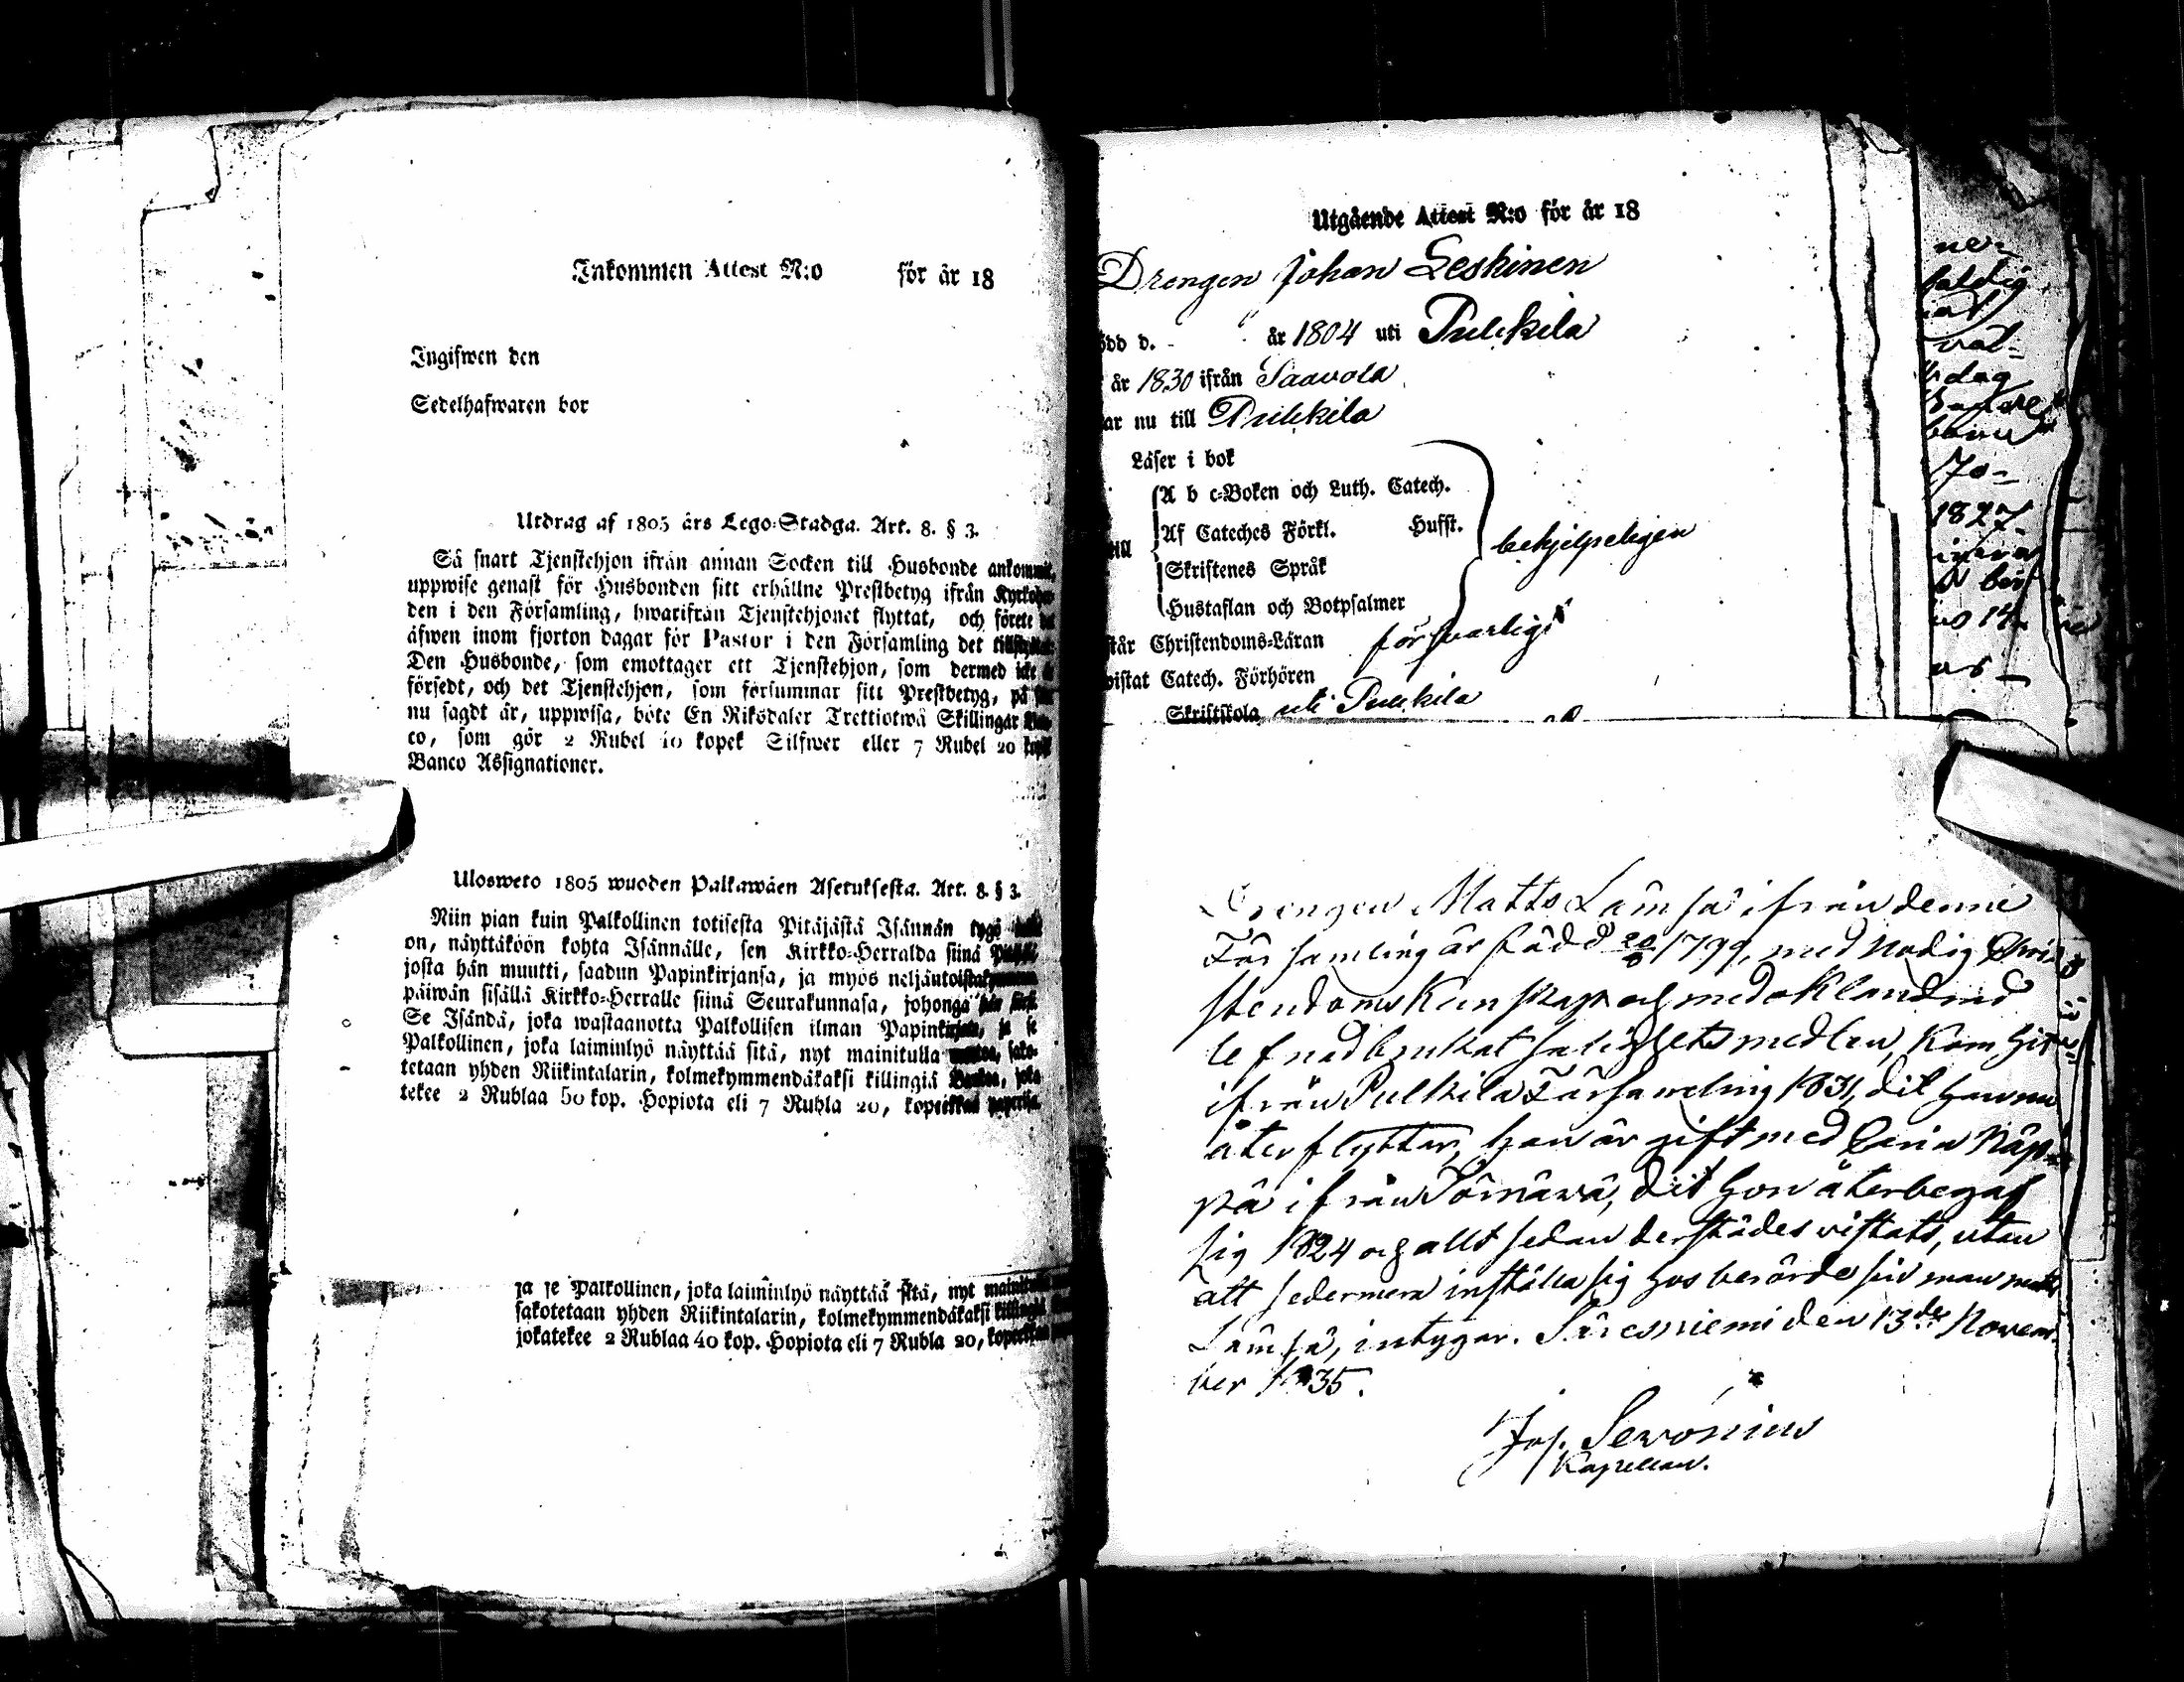 Inkommen Attest N:o för år 18
Ingifwen den
Sedelhafwaren bor
Utdrag af 1805 års Lego-Stadga. Art. 8. § 3.
Så snart Tjenstehjon ifrån annan Socken till Husbonde ankommit,
uppwise genast för Husbonden sitt erhållne Prestbetyg ifrån Kyrkoher-
den i den Församling, hwarifrån Tjenstehjonet flyttat, och förete det
äfwen inom fjorton dagar för Pastor i den Församling det tillflyttat.
Den Husbonde, som emottager ett Tjenstehjon, som dermed icke är
försedt, och det Tjenstehjon, som försummar sitt Prestbetyg, på sätt
nu sagdt är, uppwisa, böte En Riksdaler Trettiotwå Skillingar Ban-
co, som gör 2 Rubel 40 kopek Silfwer eller 7 Rubel 20 kopek
Banco Assignationer.
Ulosweto 1805 wuoden Palkawäen Asetuksesta. Art. 8. § 3.
Niin pian kuin Palkollinen totisesta Pitäjästä Isännän tygö
on, näyttäköön kohta Isännälle, sen Kirkko-Herralda siinä
josta hän muutti, saadun Papinkirjansa, ja myös neljäntoistakymmenen
päiwän sisällä Kirkko-Herralle siinä Seurakunnasa, johonga hän
Se Isändä, joka wastaanotta Palkollisen ilman Papinkirjata, ja se
Palkollinen, joka laiminlyö näyttää sitä, nyt mainitulla sako-
tetaan yhden Riikintalarin, kolmekymmendäkaksi killingiä Bankoa, joka
tekee 2 Rublaa 50 kop. Hopiota eli 7 Rubla 20, kopeekkaa paperisa.
ja se Palkollinen, joka laiminlyö näyttää sitä, nyt
sakotetaan yhden Riikintalarin, kolmekymmendäkaksi killingiä
jokatekee 2 Rublaa 40 kop. Hopiota eli 7 Rubla 20, kopeekkaa
Utgående Attest N:o för år 18
Drengen Johan Leskinen
ödd d. år 1804 uti Pulkkila
år 1830 ifrån Saavola
ar nu till Pulkkila
Läser i bok
A b c-Boken och Luth. Catech.
Af Cateches Förkl. Hufst.
till behjelpeligen
Skriftenes Språk
Hustaflan och Botpsalmer
står Christendoms-Läran försvarligt
vistat Catech. Förhören
Skriftskola uti Pulkkila
Drengen Matts Lämsä ifrån denne
Församling är född 20/8 1799, med nödig Chri-
stendoms Kunskap och med oklandrad
lefnad brukat salighetsmedlen, Kom hit
ifrån Pulkila Församling 1831, dit han nu
återflyttar, han är gift med Caria Näp-
pä ifrån Törnäwä, dit hon återbegaf
sig 1824 och allt sedan derstädes vistats, utan
att sedermera inställa sig hos berörde sin man Matts
Lämsä, intygar. Säresniemi den 13de Novem-
ber 1835.
Jos. Servonius
Kapellan.